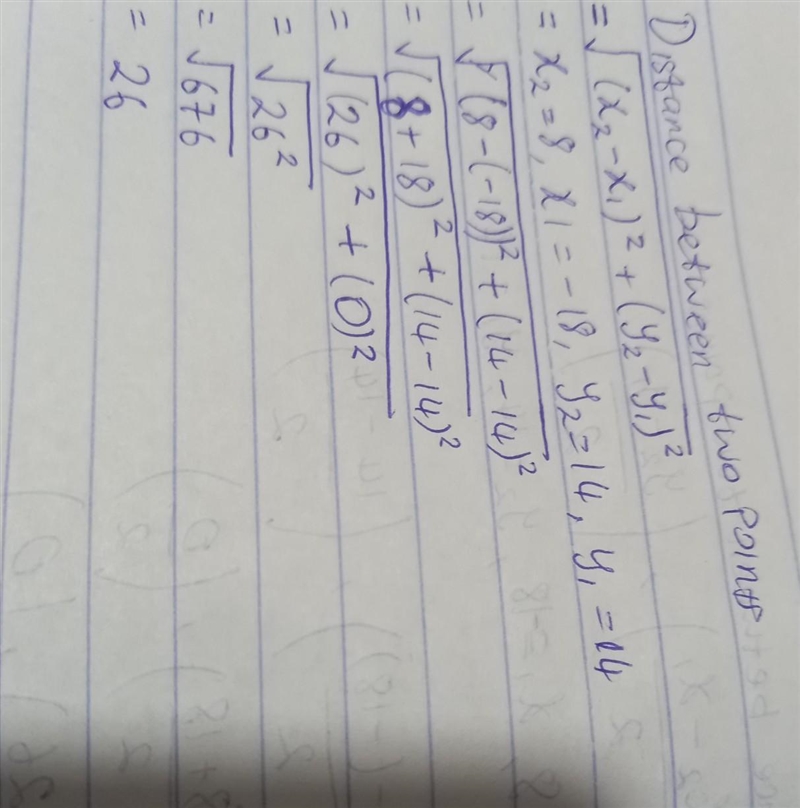 Distance between two points
= √(x₂ - x₁)² + (y₂ - y₁)²
= x₂ = 8, x1 = -18, y₂ = 14, y₁ = 14
= √(8 - (-18))² + (14 - 14)²
= √(8 + 18)² + (14 - 14)²
= √(26)² + (0)²
= √26²
= √676
= 26